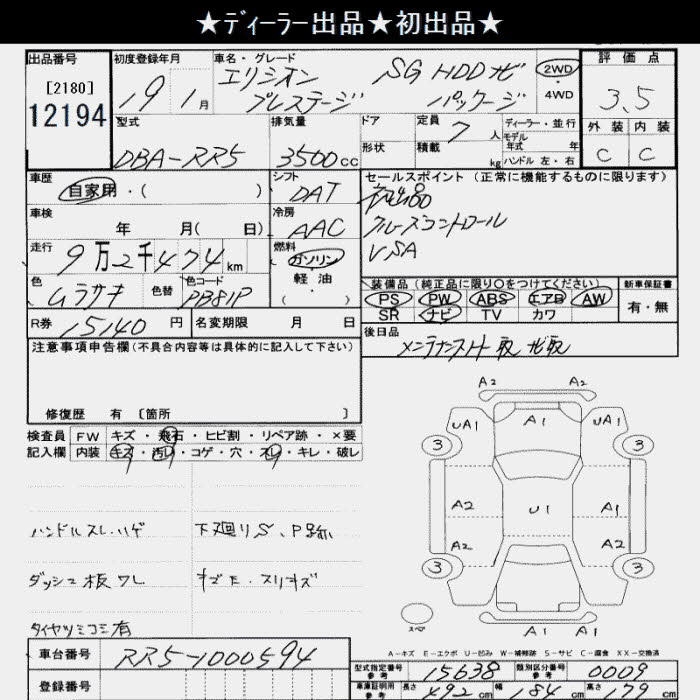 ★ディーラー出品★初出品★
出品番号 初度登録年月 車名・グレード 評価点
[2180]
12194
19 1月
エリシオン SG HDDナビ
プレステージ パッケージ
2WD
・
4WD
3.5
型式 排気量 ドア 定員 7 人 ディーラー・並行 外装 内装
DBA-RR5 3500cc 形状 積載 kg モデル年式 年 ハンドル 左・右 C C
車歴 シフト セールスポイント (正常に機能するものに限ります)
自家用・( ) DAT 初出品
車検 冷房 クルーズコントロール
年 月( 日) AAC VSA
走行 9万2千474km 燃料 ガソリン
軽油
・( )
色 ムラサキ 色替 色コード PB81P
装備品 (純正品に限り○をつけてください) 新車保証書
PS PW ABS エアB AW 有・無
SR ナビ TV カワ
R券 15140 円 名変期限 月 日
後日品
メンテナンスノート 取 ナビ取
注意事項申告欄 (不具合内容等は具体的に記入して下さい)
修復歴 有 〔箇所 〕
検査員 FW キズ・飛石・ヒビ割・リペア跡・×要
記入欄 内装 キズ・汚レ・コゲ・穴・スレ・キレ・破レ
ハンドルスレ・ハゲ 下廻りS、P跡
ダッシュ板ワレ
タイヤツミコミ有
A2 A2
UA1 A1 UA1
3 3
A2 U1 A1
A2 A2
3 3
A1
A1 A1
スペア
A-キズ E-エクボ U-凹み W-補修跡 S-サビ C-腐食 XX-交換済
車台番号 RR5-1000594
登録番号
型式指定番号 参考 15638 類別区分番号 参考 0009
車庫証明用 参考 長さ 492cm 幅 184cm 高さ 179cm